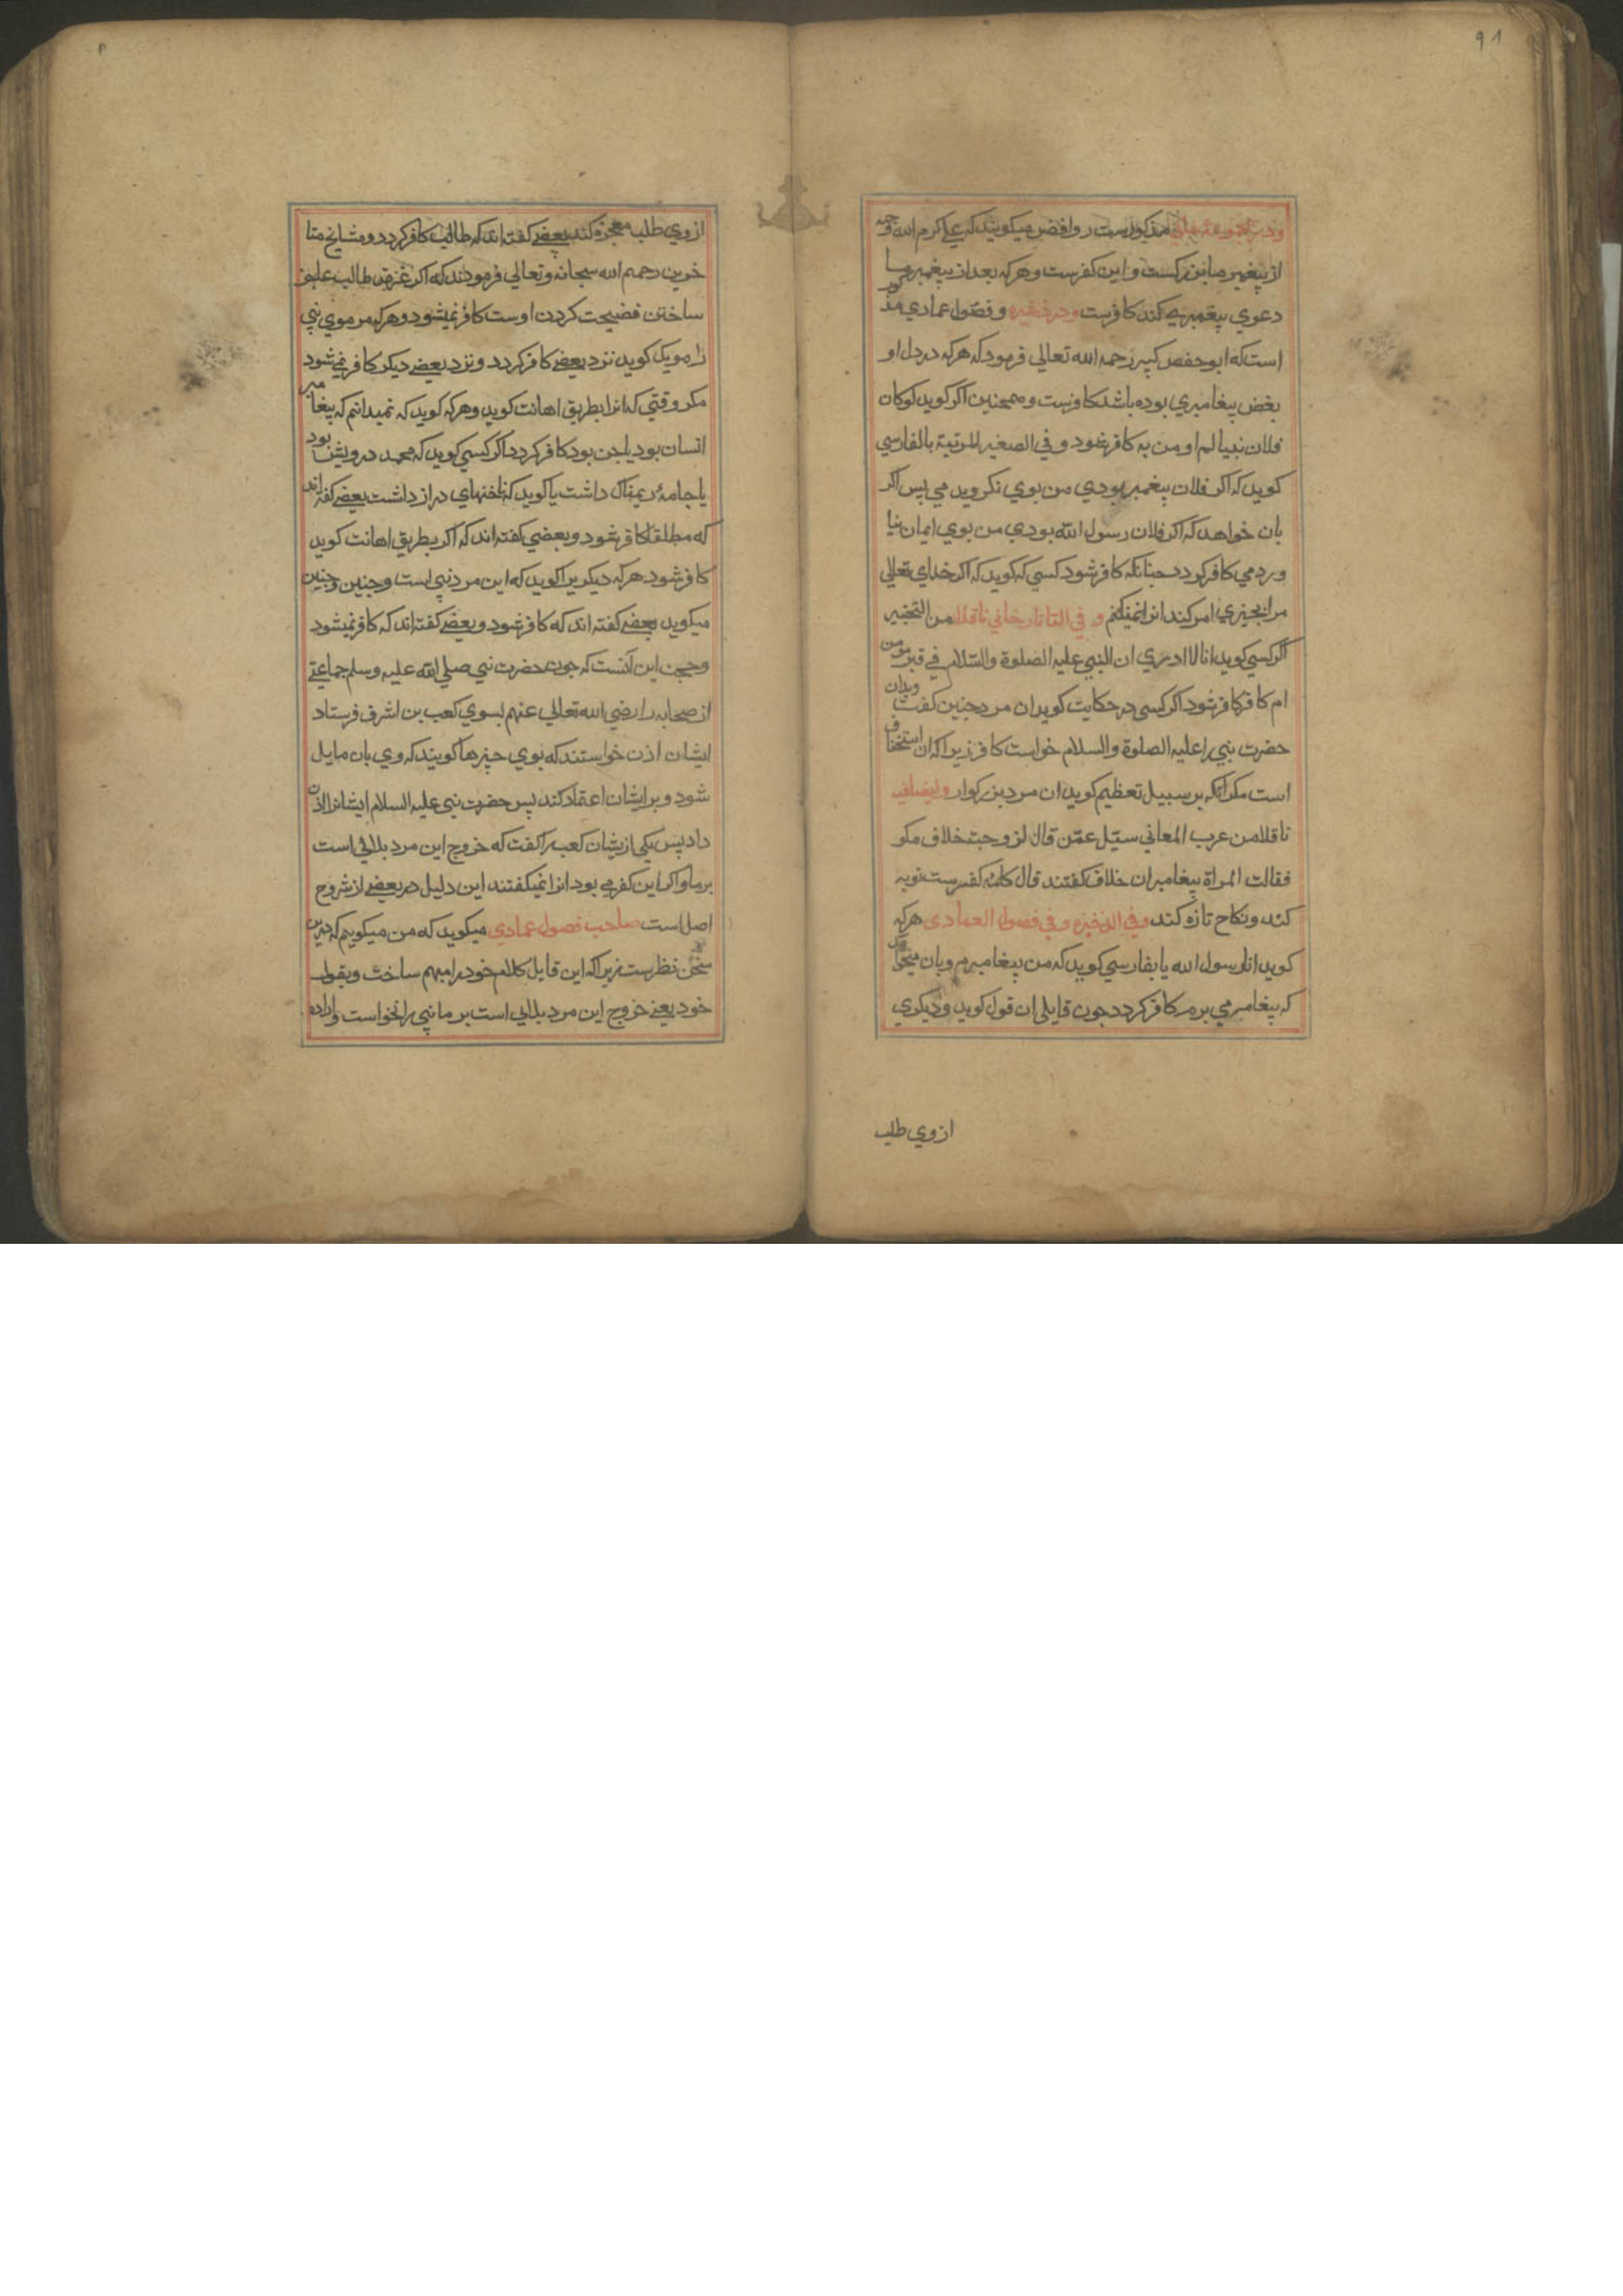 ۹۱
ودر مجموعه خانی مذکورست روافض میکویند که علی کرم الله وجهه
از پیغمبر ما بزرکست و این کفرست و هرکه بعد از پیغمبر ما
دعوی پیغمبری کند کافرست ودر ذخیره و فصول عمادی مذکور
است که ابو حفص کبیر رحمه الله تعالی فرمود که هرکه در دل او
بغض پیغامبری بوده باشد کافرست و همچنین اکر کوید لوکان
فلان نبیا لم اومن به کافر شود و فی الصغیر المرتبة بالفارسی
کوید که اکر فلان پیغمبر بودی من بوی نکرویدمی پس اکر
بان خواهد که اکر فلان رسول الله بودی من بوی ایمان نیا
وردمی کافر کردد جنانکه کافر شود کسی که کوید که اکر خدای تعالی
مرا بجیزی امر کند انرا نمیکنم و فی التاتارخانی ناقلا من التخییر
اکر کسی کوید انا لا ادری ان النبی علیه الصلوة والسلام فی قبره مومن
ام کافر کافر شود اکر کسی در حکایت کوید ان مرد جنین کفت وبدان
حضرت نبی را علیه الصلوة والسلام خواست کافر زیرا که ان استخفاف
است مکر آنکه بر سبیل تعظیم کوید ان مرد بزرکوار وایضا فیه
ناقلا من عرب المعانی سئل عمن قال لزوجته خلاف مکو
فقالت المراة پیغامبران خلاف کفتند قال کلمهٔ کفرست توبه
کند ونکاح تازه کند وفی الذخیره وفی فصول العمادی هرکه
کوید انا رسول الله یا بفارسی کوید که من پیغامبرم وبان میخواهد
که پیغامبری برم کافر کردد جون قایلی ان قول کوید ودیکری
از وی طلب
از وی طلب معجزه کند بعضی کفته اند که طالب کافر کردد و مشایخ متا
خرین رحمهم الله سبحانه وتعالی فرمودند که اکر غرض طالب عاجز
ساختن فضیحت کردن اوست کافر نمیشود و هرکه مر موی نبی
را مویک کوید نزد بعضی کافر کردد و نزد بعضی دیکر کافر نمی شود
مکر وقتی که انرا بطریق اهانت کوید و هرکه کوید که نمیدانم که پیغامبر
انسان بود یا جن بود کافر کردد اکر کسی کوید که محمد درویش بود
یا جامهٔ ریمناک داشت یا کوید که ناخنهای دراز داشت بعضی کفته اند
که مطلقا کافر شود و بعضی کفته اند که اکر بطریق اهانت کوید
کافر شود هرکه دیکریرا کوید که این مرد نبی است وجنین وجنین
میکوید بعضی کفته اند که کافر شود و بعضی کفته اند که کافر نمیشود
وحجت این آنست که جون حضرت نبی صلی الله علیه وسلم جماعتی
از صحابه را رضی الله تعالی عنهم بسوی کعب بن اشرف فرستاد
ایشان اذن خواستند که بوی جیزها کویند که وی بان مایل
شود و بر ایشان اعتماد کند پس حضرت نبی علیه السلام ایشانرا اذن
داد پس یکی ازیشان کعب را کفت که خروج این مرد بلائی است
بر ما واکر این کفر می بود انرا نمیکفتند این دلیل در بعضی از شروح
اصل است صاحب فصول عمادی میکوید که من میکویم که درین
سخن نظرست زیرا که این قایل کلام خود را مبهم ساخت وبقول
خود یعنی خروج این مرد بلائی است بر ما نبی را نخواست واراده